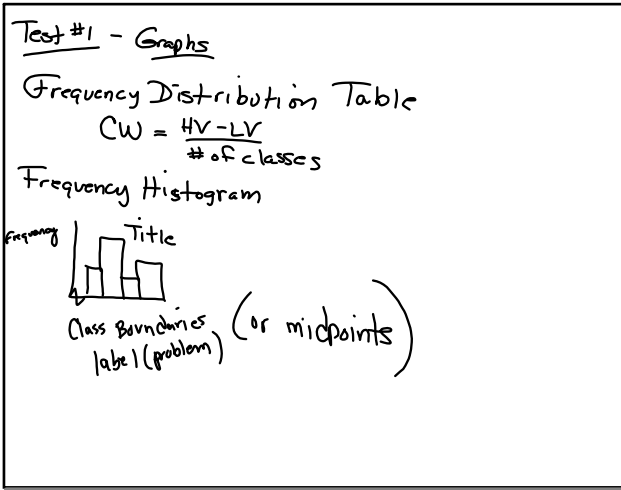 Test #1 - Graphs
Frequency Distribution Table
CW = HV - LV
# of classes
Frequency Histogram
Frequency
Title
Class Boundaries (or midpoints)
label (problem)